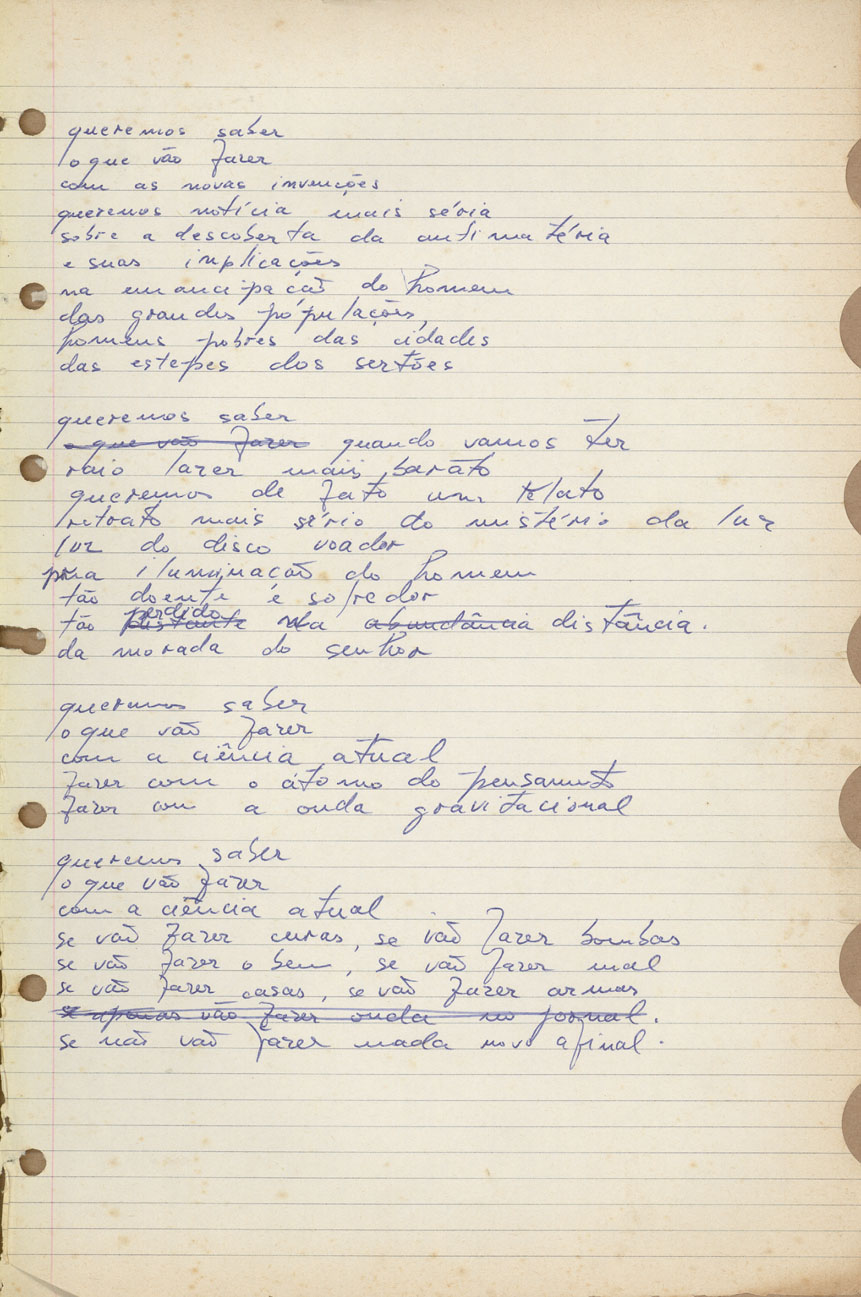 queremos saber
o que vão fazer
com as novas invenções
queremos notícia mais séria
sobre a descoberta da antimatéria
e suas implicações
na emancipação do homem
das grandes populações,
homens pobres das cidades
das estepes dos sertões
queremos saber
o que vão fazer quando vamos ter
raio lazer mais barato
queremos de fato um relato
retrato mais sério do mistério da luz
luz do disco voador
pra iluminação do homem
tão doente e sofredor
perdido
tão distante na abundância distância.
da morada do senhor
queremos saber
o que vão fazer
com a ciência atual
fazer com o átomo do pensamento
fazer com a onda gravitacional
queremos saber
o que vão fazer
com a ciência atual
se vão fazer curas, se vão fazer bombas
se vão fazer o bem, se vão fazer mal
se vão fazer casas, se vão fazer armas
se apenas vão fazer onda no jornal.
se não vão fazer nada novo afinal.